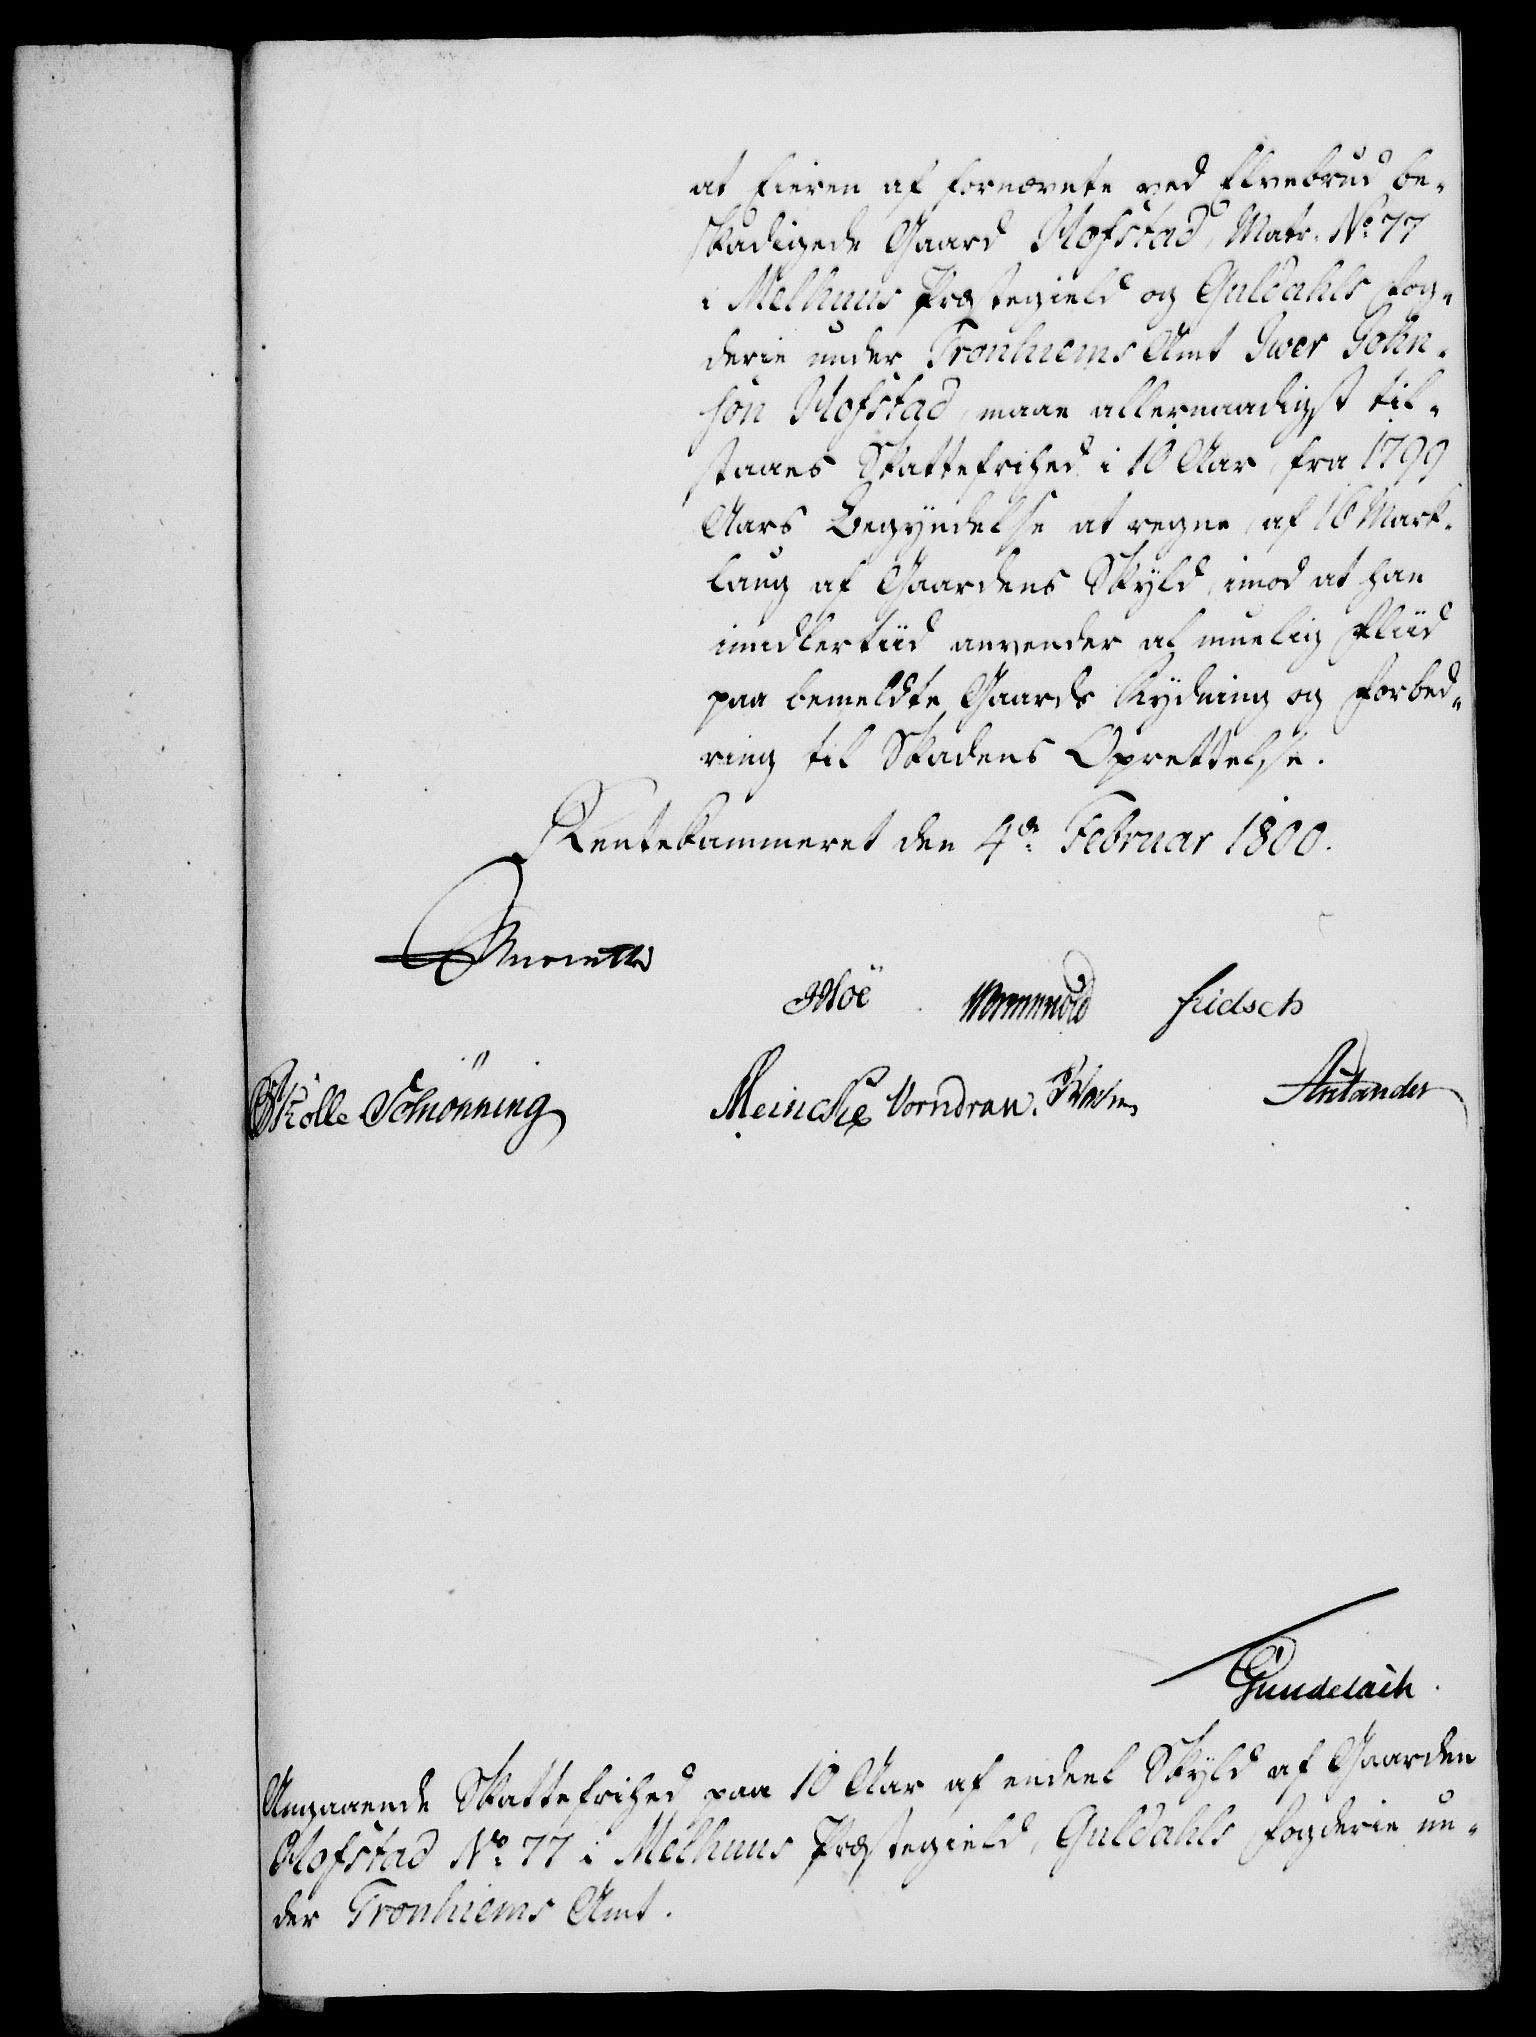 at Eieren af fornævnte ved Elvebrud be-
skadigede Gaard Hofstad, Matr. No 77
i Melhuus Præstegield og Guldahls Fog-
derie under Tronhiems Amt Iver John-
søn Hofstad, maae allernaadigst til-
staaes Skattefrihed i 10 Aar, fra 1799
Aars Begyndelse at regne, af 16 Mark-
laug af Gaardens Skyld, imod at han
imidlertiid anvender al muelig Fliid
paa bemeldte Gaards Rydning og Forbed-
ring til Skadens Oprettelse.
Rentekammeret den 4de Februar 1800.
Høe Wormskiold Fridsch
Schiønning Meincke Vorndran.
Gundelach.
Angaaende Skattefrihed paa 10 Aar af endeel Skyld af Gaarden
Hofstad No 77 i Melhuus Præstegield, Guldahls Fogderie un-
der Tronhiems Amt.